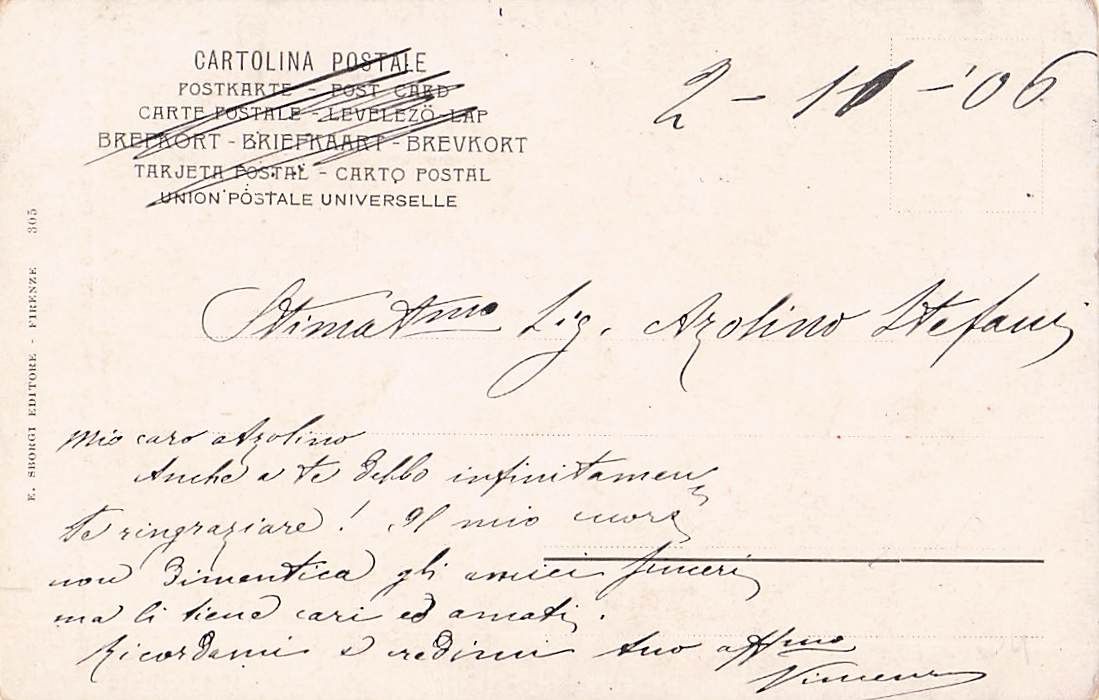 CARTOLINA POSTALE
POSTKARTE - POST CARD
CARTE POSTALE - LEVELEZÖ-LAP
BREFKORT - BRIEFKAART - BREVKORT
TARJETA POSTAL - CARTO POSTAL
UNION POSTALE UNIVERSELLE
2 - 10 - '06
E. SBORGI EDITORE - FIRENZE 305
Stimatmo Sig. Azolino Stefani
Mio caro Azolino
Anche a te debbo infinitamen
te ringraziare! Il mio cuore
non dimentica gli amici sinceri
ma li tiene cari ed amati.
Ricordami e credimi tuo affmo